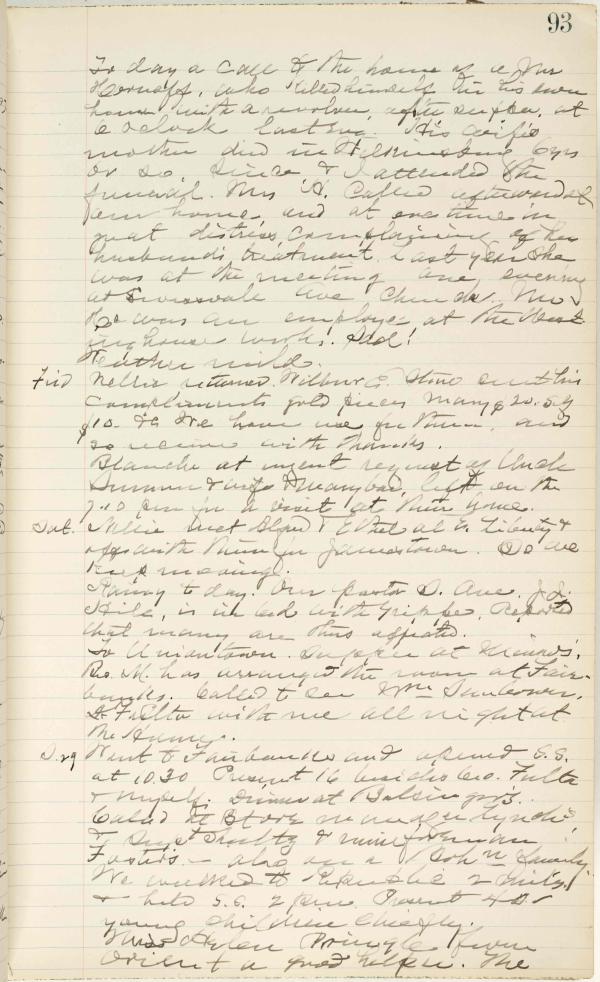 93
To day a call to the home of a Mr
who killed himself in his own
house with a revolver, after supper, at
6 o'clock last eve. His wife's
mother died in Wilkinsburg 6 yrs
or so, since, & I attended the
funeral. Mrs H. called afterwards at
our home, and at one time in
great distress, complaining of her
husband's treatment. Last year she
was at the meeting one evening
at Swissvale Ave Church. Mr
H. was an employe at the West
inghouse works. Sad!
Weather mild.
Frid Nellie returned. Wilbur E. Stone sent his
compliments gold pieces 20. 5. &
10. We have use for them, and
so receive with thanks.
Blanche at urgent request of Uncle
& wife left on the
7.10 pm for a visit at their home.
Sat. Nellie met & Ethel at E. Liberty &
off with them for Jamestown. So we
keep moving.
Rainy to day. Our pastor S. Ave, J. L.
is in bed with Grippe. Reported
that many are thus affected.
To Uniontown. Supper at
Rev. M. has arranged the room at Fair-
banks. Called to see Wm
Fulton with me all night at
the Home.
S. 29 Went to Fairbanks and opened S.S.
at 10.30 Present 16 besides Geo. Fulton
& myself. Dinner at
Called at Store manager
& Supt & mine foreman
Foster's - also on a family.
We walked to Republic 2 miles
& held S.S. 2 p.m. Present 40
young children chiefly.
Miss Helen Pringle from
Orient a good helper. The